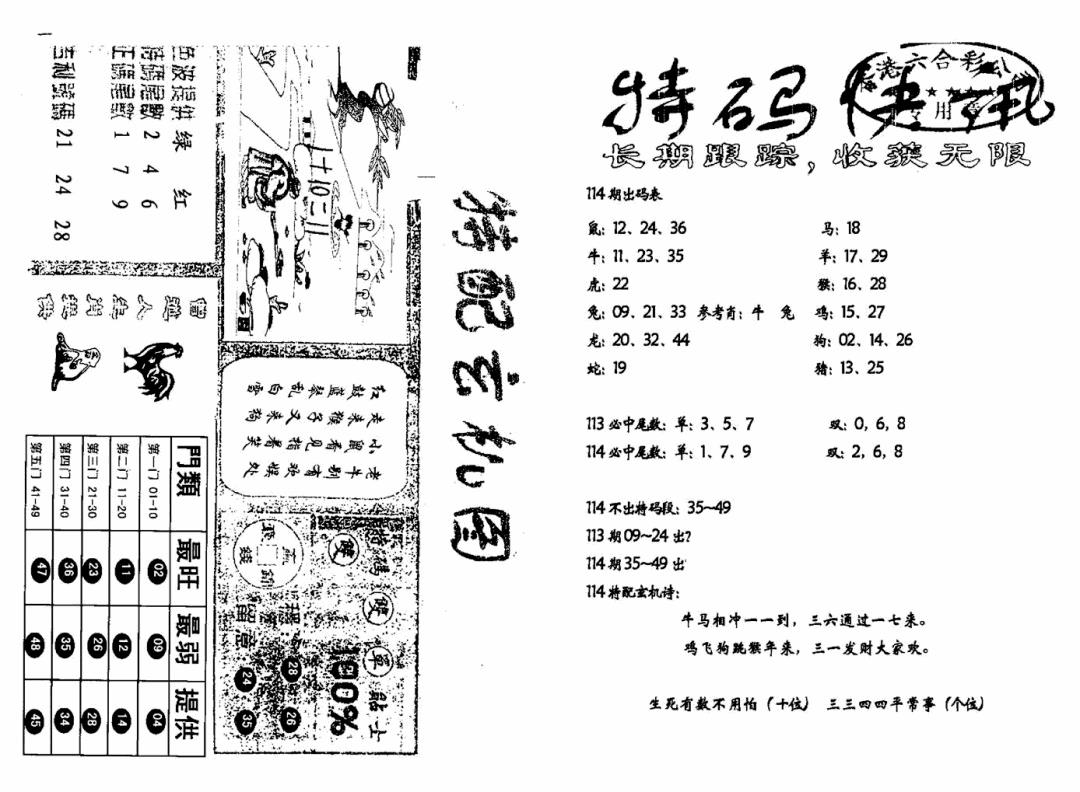 特码快讯
香港六合彩公
★★★★★
专用章
长期跟踪，收获无限
114期出码表
鼠：12、24、36
马：18
牛：11、23、35
羊：17、29
虎：22
猴：16、28
兔：09、21、33 参考肖：牛 兔
鸡：15、27
龙：20、32、44
狗：02、14、26
蛇：19
猪：13、25
113必中尾数：单：3、5、7
双：0，6，8
114必中尾数：单：1、7、9
双：2，6，8
114不出特码段：35~49
113期09~24出?
114期35~49出
114特配玄机诗：
牛马相冲一一到，三六通过一七来。
鸡飞狗跳猴年来，三一发财大家欢。
生死有数不用怕（十位） 三三四四平常事（个位）
特配玄机图
1+10=11
红鼓蓝琴乱白雪
老来猴子又来狗
小鼠看见指着笑
老牛别有欢娱处
波提供 绿 红
特碼尾數 2 4 6
正碼尾數 1 7 9
吉利號碼 21 24 28
曾道人生肖
門類 最旺 最弱 提供
第一门 01-10 02 09 04
第二门 11-20 11 12 14
第三门 21-30 23 26 28
第四门 31-40 36 35 34
第五门 41-49 47 48 45
特碼
雙
雙
單
貼士
100%
留意
28 26
24 35